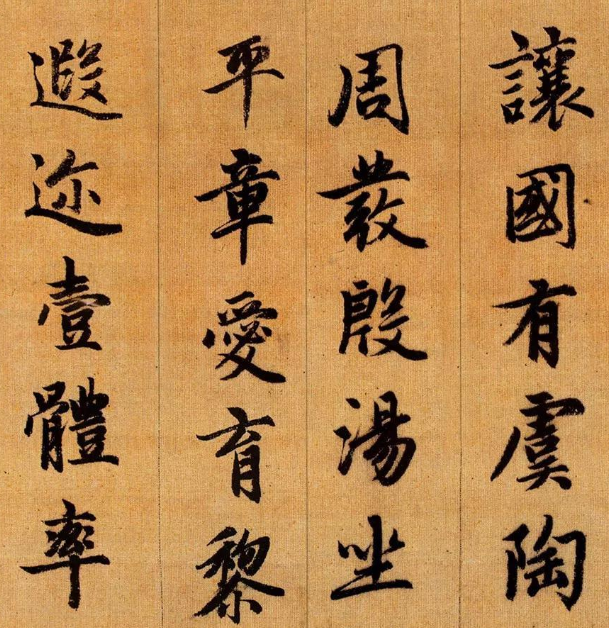 讓國有虞陶
周發殷湯坐
平章愛育黎
遐迩壹體率